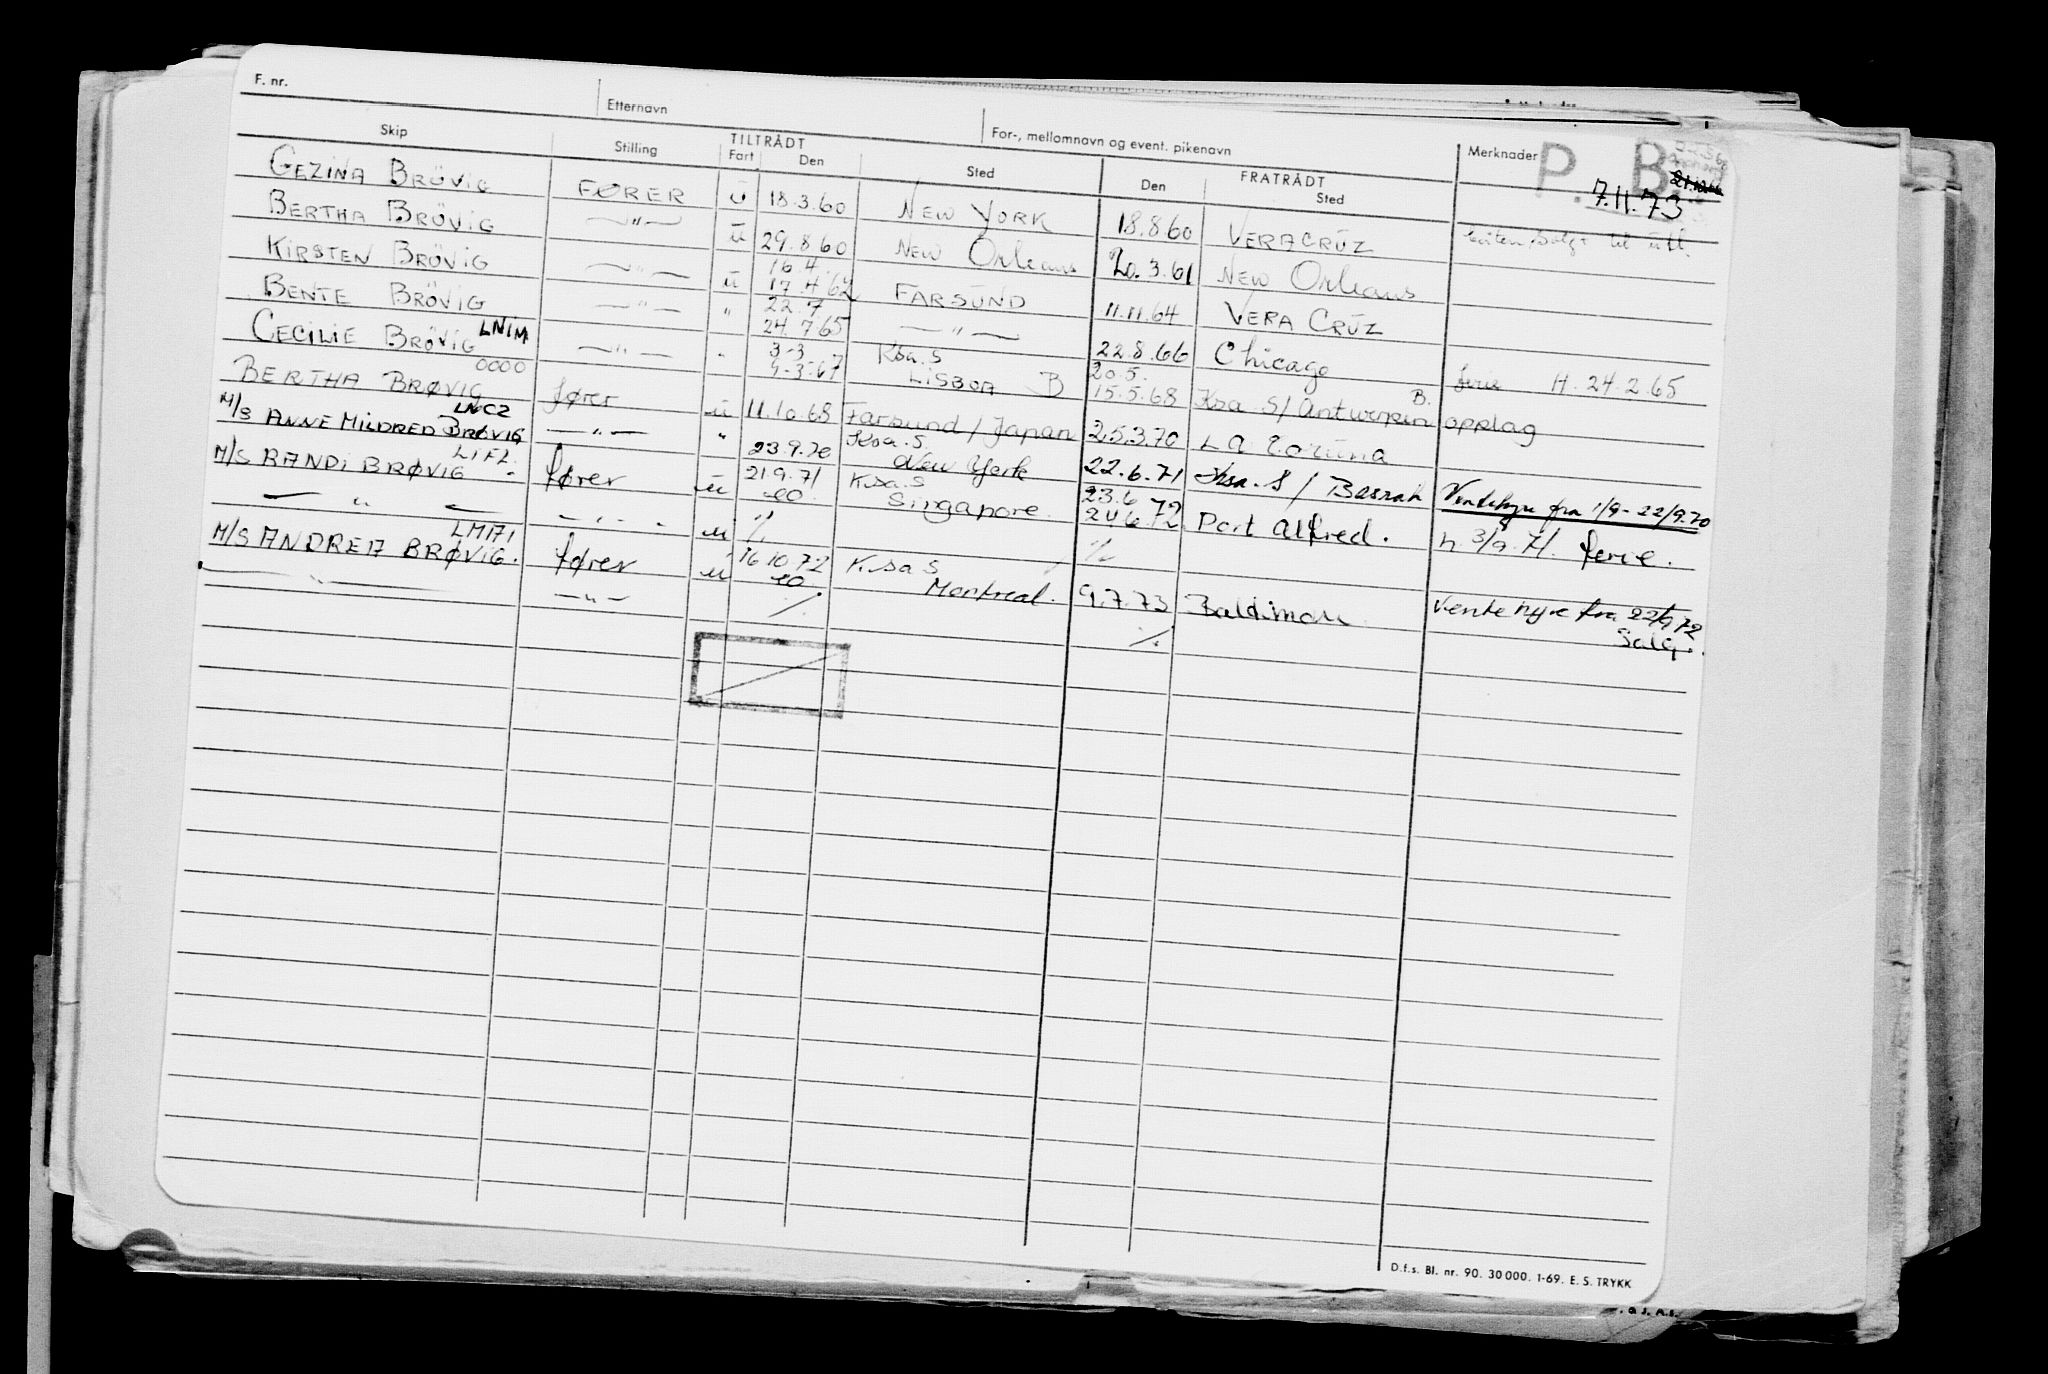 F. nr.
Etternavn
For-, mellomnavn og event. pikenavn
Skip Stilling TILTRÅDT Fart Den Sted FRATRÅDT Den Sted Merknader P. B.
7.11.73
GEZINA BRÖVIG FØRER u 18.3.60 NEW YORK 18.8.60 VERACRUZ til utl.
BERTHA BRÖVIG —"— u 29.8.60 NEW Orleans 20.3.61 NEW Orleans
KIRSTEN BRÖVIG —"— u 16.4. 17.4.62 FARSUND 11.11.64 VERA CRUZ
BENTE BRÖVIG —"— " 22.7 24.7.65 —"— 22.8.66 Chicago ferie H. 24.2.65
CECILIE BRÖVIG LNIM —"— " 3-3 9-3-67 Ksa. S LISBOA B 20.5. 15.5.68 Ksa S/Antwerpen B. opplag
BERTHA BRØVIG OOOO fører u 11.10.68 Farsund/Japan 25.3.70 LA Coruna
M/S ANNE MILDRED BRØVIG LNCZ —"— " 23.9.70 Ksa. S. New York 22.6.71 Ksa. S / Basrah Ventehyre fra 1/9-22/9.70
M/S RANDI BRØVIG LIFL fører u 21.9.71 Ksa. S Singapore. 23.6 24.6.72 Port Alfred. h. 3/9.71. ferie.
— " — — " — u % %
M/S ANDREA BRØVIG. LMAI fører u 16.10.72 Ksa S Montreal. 9.7.73 Baltimore Ventehyre fra 22/9 72
Salg.
— " — — " — % %
D.f.s. Bl. nr. 90. 30 000. 1-69. E. S. TRYKK